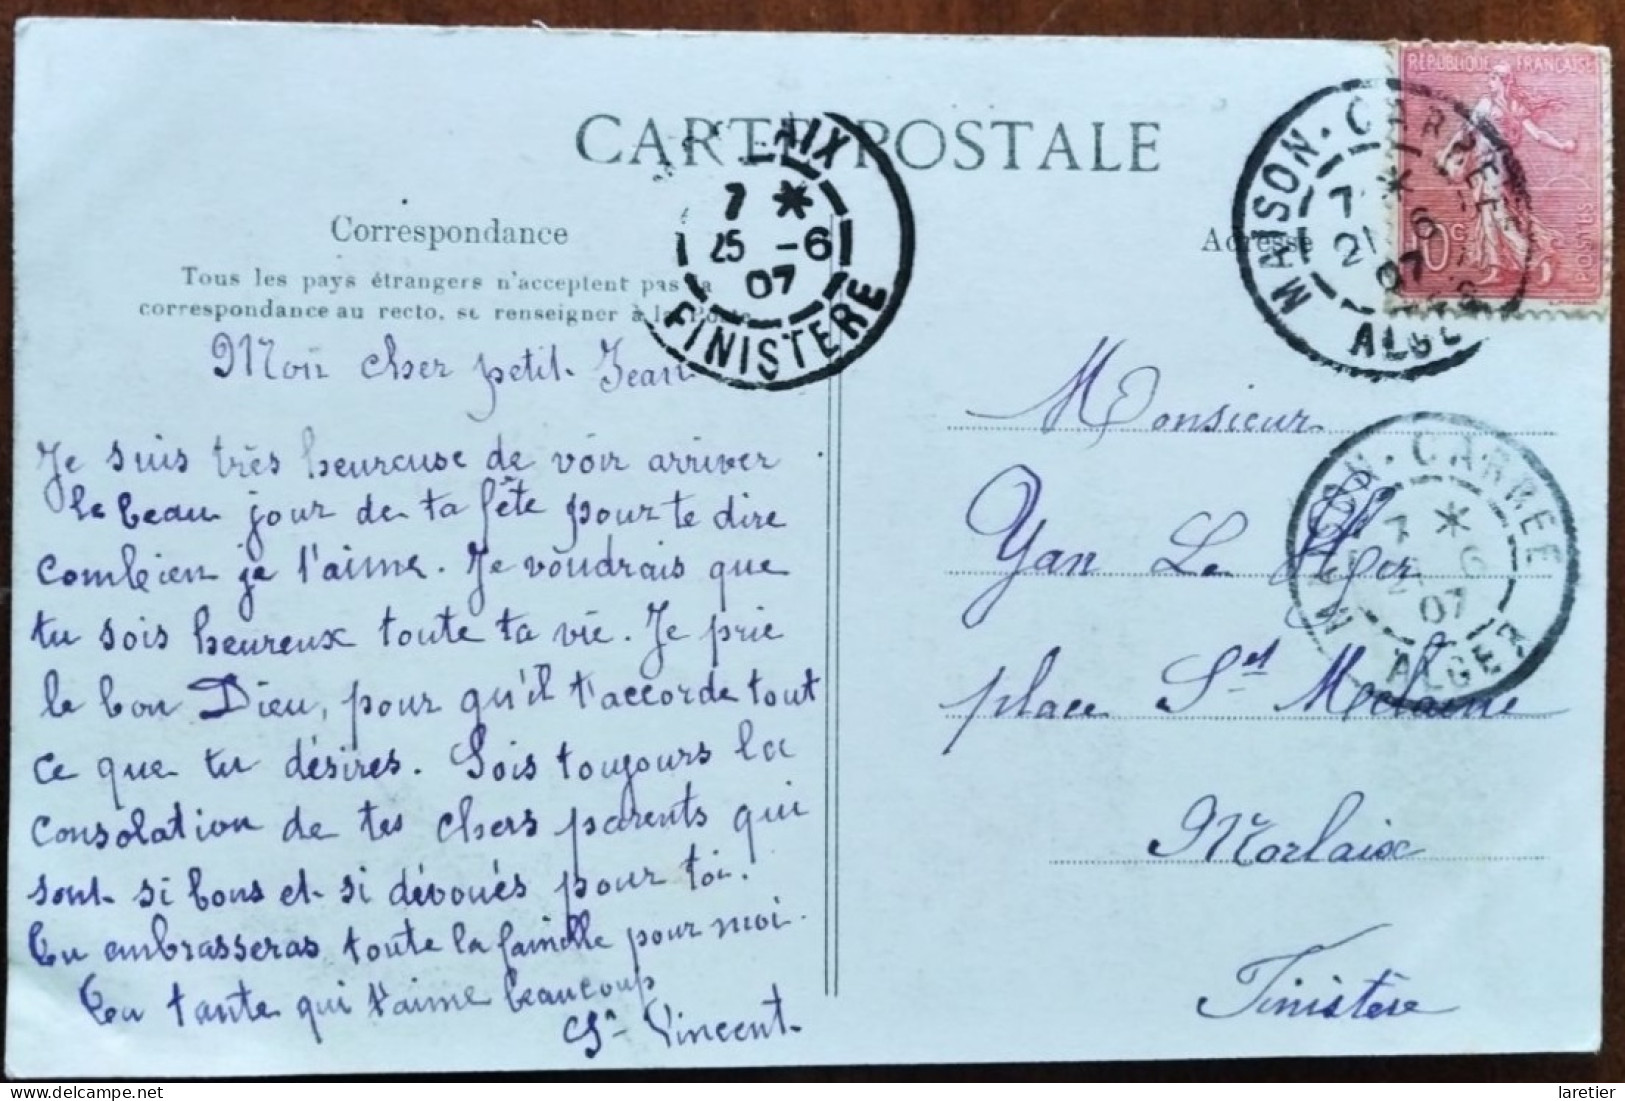 CARTE POSTALE
Correspondance
Tous les pays étrangers n'acceptent pas la
correspondance au recto, se renseigner à la Poste
Mon cher petit Jean
Je suis très heureuse de voir arriver
le beau jour de ta fête pour te dire
combien je t'aime. Je voudrais que
tu sois heureux toute ta vie. Je prie
le bon Dieu, pour qu'il t'accorde tout
ce que tu désires. Sois toujours la
consolation de tes chers parents qui
sont si bons et si dévoués pour toi.
Tu embrasseras toute la famille pour moi.
Ta tante qui t'aime beaucoup
Sr Vincent
AIX
7 *
25 -6
07
FINISTERE
REPUBLIQUE FRANÇAISE
10c
POSTES
MAISON-CARRÉE
7 *
21 6
07
ALGER
Adresse
Monsieur
Yan Le
place St Melaine
Morlaix
Finistère
MAISON-CARREE
7 *
2 6
07
ALGER
laretier